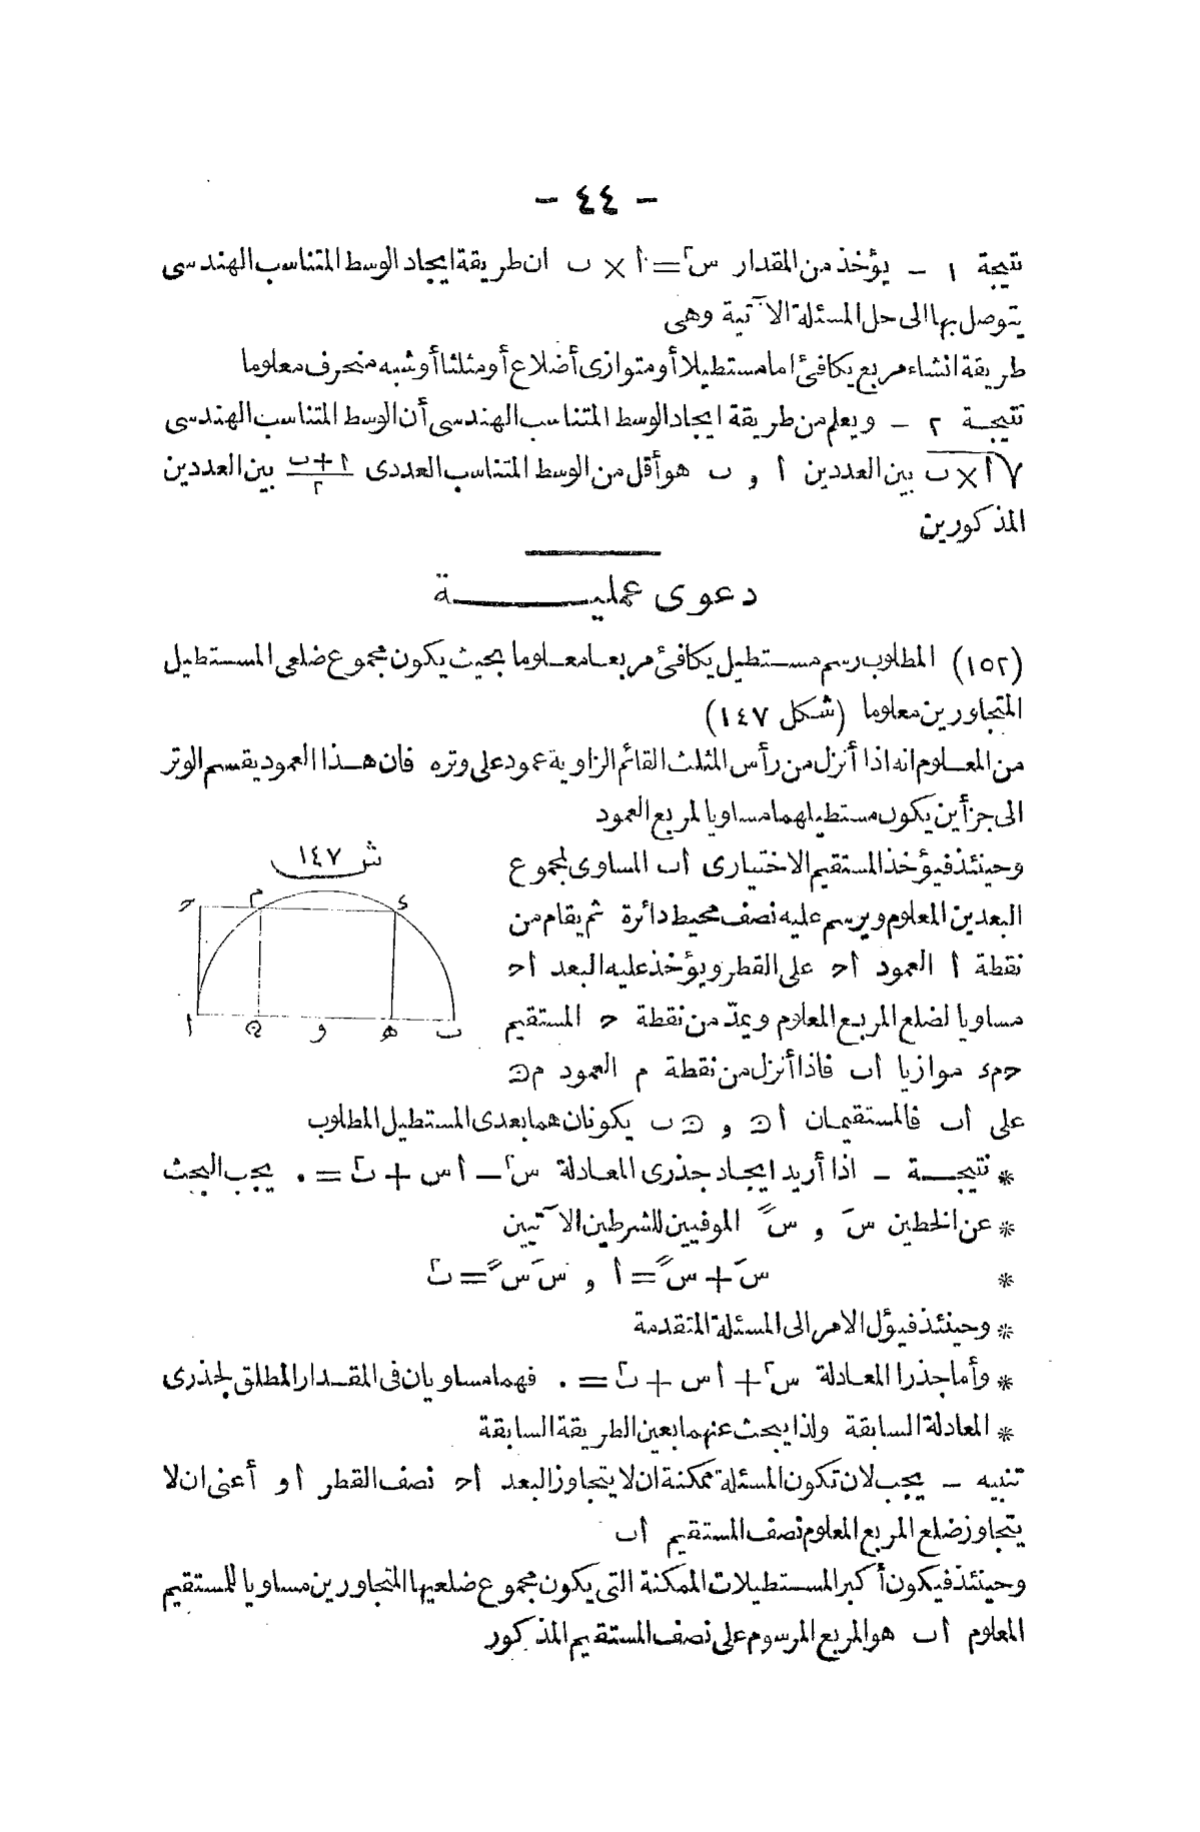 - ٤٤ -
نتيجة ١ - يؤخذ من المقدار س٢ = أ × ب ان طريقة ايجاد الوسط المتناسب الهندسى
يتوصل بها الى حل المسئلة الآتية وهى
طريقة انشاء مربع يكافئ اما مستطيلا أو متوازى أضلاع أو مثلثا أو شبه منحرف معلوما
نتيجة ٢ - ويعلم من طريقة ايجاد الوسط المتناسب الهندسى أن الوسط المتناسب الهندسى
√(أ × ب) بين العددين أ و ب هو أقل من الوسط المتناسب العددى (أ + ب)/٢ بين العددين
المذكورين
دعوى عمليـــة
(١٥٢) المطلوب رسم مستطيل يكافئ مربعا معلوما بحيث يكون مجموع ضلعى المستطيل
المتجاورين معلوما (شكل ١٤٧)
من المعلوم انه اذا أنزل من رأس المثلث القائم الزاوية عمود على وتره فان هذا العمود يقسم الوتر
الى جزأين يكون مستطيلهما مساويا لمربع العمود
وحينئذ فيؤخذ المستقيم الاختيارى أب المساوى لمجموع
البعدين المعلوم ويرسم عليه نصف محيط دائرة ثم يقام من
نقطة أ العمود أح على القطر ويؤخذ عليه البعد أح
مساويا لضلع المربع المعلوم ويمدّ من نقطة ح المستقيم
حمء موازيا أب فاذا أنزل من نقطة م العمود مں
ش ١٤٧
ح م ء
أ ں و ه ب
على أب فالمستقيمان أں و ںب يكونان هما بعدى المستطيل المطلوب
* نتيجـة - اذا أريد ايجاد جذرى المعادلة س٢ - أس + ب٢ = ٠ يجب البحث
* عن الخطين سَ و سً الموفيين للشرطين الآتيين
* سَ + سً = أ و سَ سً = ب٢
* وحينئذ فيؤل الامر الى المسئلة المتقدمة
* وأما جذرا المعادلة س٢ + أس + ب٢ = ٠ فهما مساويان فى المقدار المطلق لجذرى
* المعادلة السابقة ولذا يبحث عنهما بعين الطريقة السابقة
تنبيه - يجب لان تكون المسئلة ممكنة ان لا يتجاوز البعد أح نصف القطر أو أعنى ان لا
يتجاوز ضلع المربع المعلوم نصف المستقيم أب
وحينئذ فيكون أكبر المستطيلات الممكنة التى يكون مجموع ضلعيها المتجاورين مساويا للمستقيم
المعلوم أب هو المربع المرسوم على نصف المستقيم المذكور